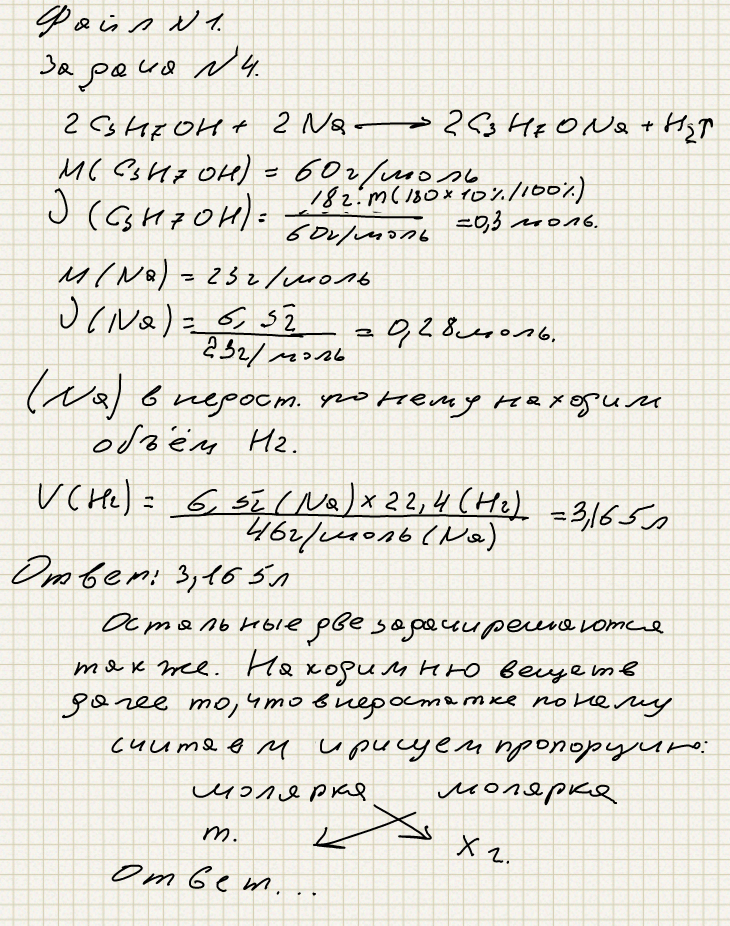 Файл №1.
Задача №4.
2C3H7OH + 2Na ⟶ 2C3H7ONa + H2↑
M(C3H7OH) = 60г/моль
18г. m(180×10%/100%)
υ(C3H7OH) = = 0,3 моль.
60г/моль
M(Na) = 23г/моль
υ(Na) = 6,5г = 0,28моль.
23г/моль
(Na) в недост. по нему находим
объём H2.
V(H2) = 6,5г(Na)×22,4(H2) = 3,165л
46г/моль(Na)
Ответ: 3,165л
Остальные две задачи решаются
так же. Находим ню веществ
далее то, что в недостатке по нему
считаем и рисуем пропорцию:
молярка молярка
m. X г.
Ответ...